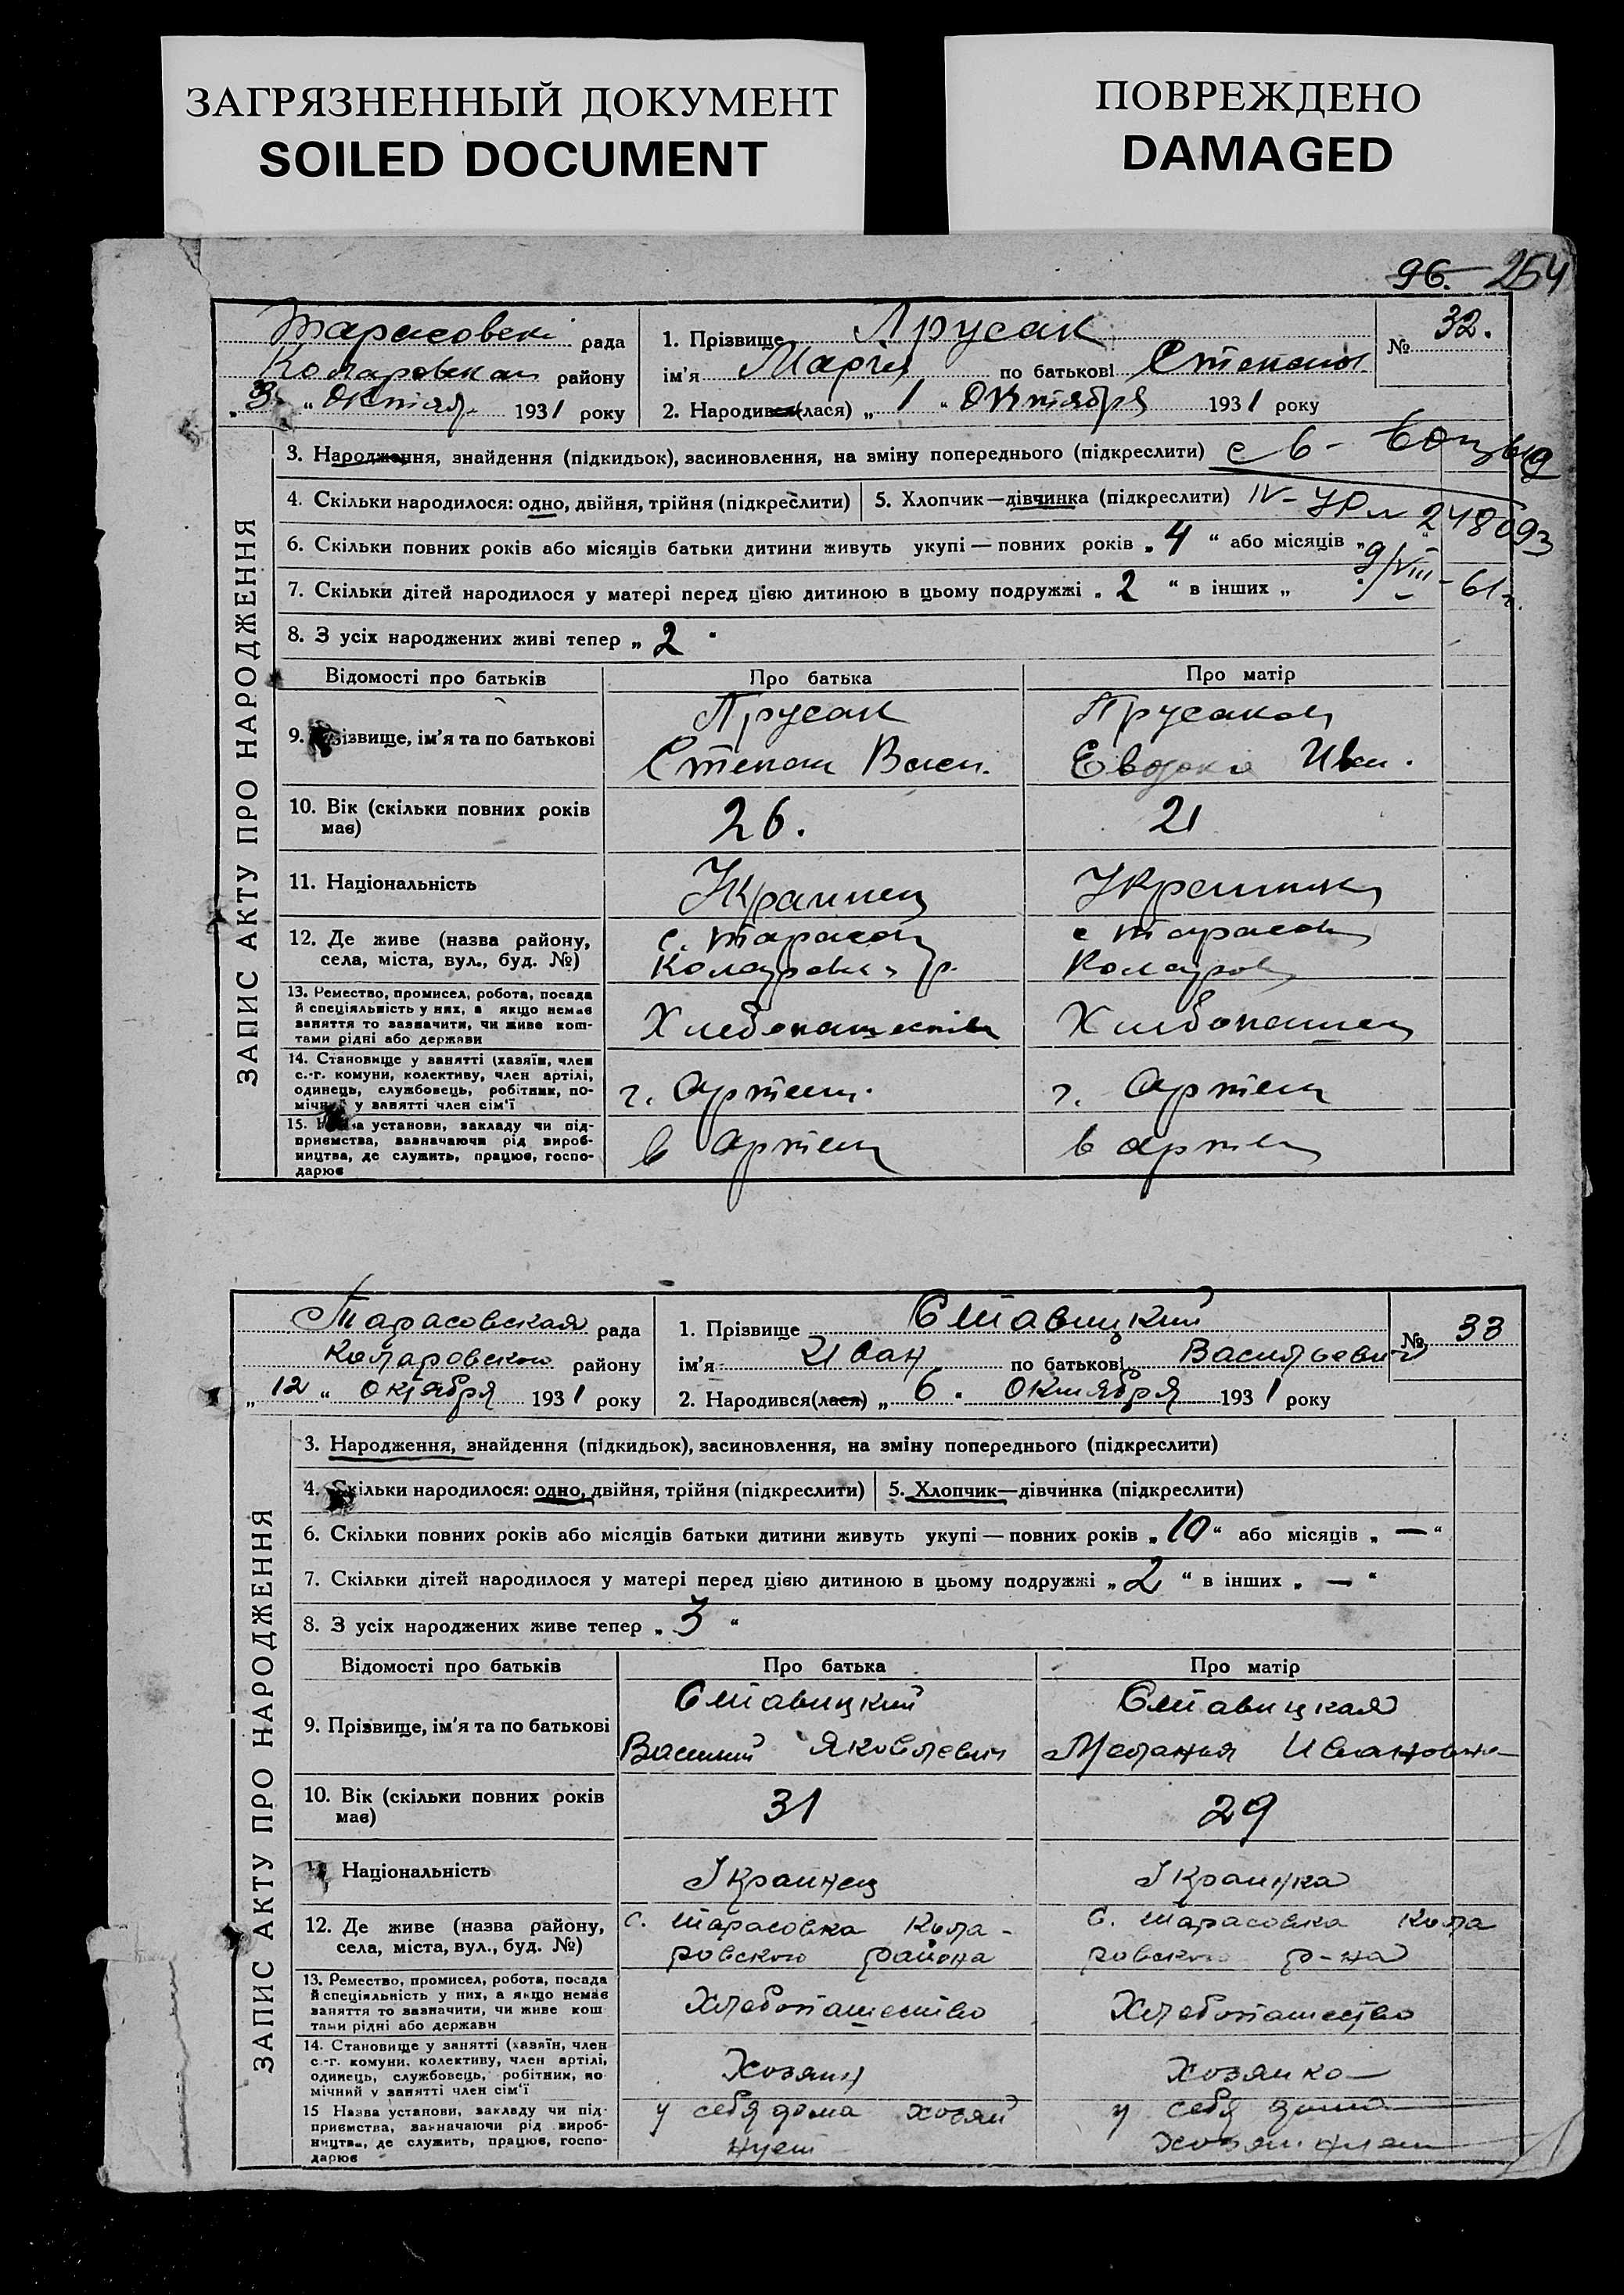 ЗАГРЯЗНЕННЫЙ ДОКУМЕНТ
SOILED DOCUMENT
ПОВРЕЖДЕНО
DAMAGED
96. 254
Тарасовскі рада
району
"3" Октяб. 1931 року
1. Прізвище Прусак
ім'я Марія по батькові Степанов.
2. Народився(лася) „ 1 " Октября 1931 року
№ 32.
ЗАПИС АКТУ ПРО НАРОДЖЕННЯ
3. Народження, знайдення (підкидьок), засиновлення, на зміну попереднього (підкреслити)
4. Скільки народилося: одно, двійня, трійня (підкреслити)
5. Хлопчик—дівчинка (підкреслити) IV-УР № 248093
6. Скільки повних років або місяців батьки дитини живуть укупі — повних років „ 4 " або місяців „
9/VIII - 61 г.
7. Скільки дітей народилося у матері перед цією дитиною в цьому подружжі „ 2 " в інших „
8. З усіх народжених живі тепер „ 2 "
Відомості про батьків
Про батька
Про матір
9. Прізвище, ім'я та по батькові
Прусак
Степан Васи.
Прусакова
Иван.
10. Вік (скільки повних років
має)
26.
21
11. Національність
Украинец
Украинка
12. Де живе (назва району,
села, міста, вул., буд. №)
с. Тарасовка
р.
с Тарасовка
13. Ремество, промисел, робота, посада
й спеціяльність у них, а якщо немає
заняття то зазначити, чи живе кош-
тами рідні або держави
Хлебопашество
Хлебопашец
14. Становище у занятті (хазяїн, член
с.-г. комуни, колективу, член артілі,
одинець, службовець, робітник, по-
мічний у занятті член сім'ї
ч. Артели
ч. Артели
15. Назва установи, закладу чи під-
приємства, зазначаючи рід вироб-
ництва, де служить, працює, госпо-
дарює
в Артели
в артели
Тарасовская рада
Коларовского району
„ 12 " октября 1931 року
1. Прізвище Ставицкий
ім'я Иван по батькові Васильевич
2. Народився(лася) „ 6. Октября 1931 року
№ 33
ЗАПИС АКТУ ПРО НАРОДЖЕННЯ
3. Народження, знайдення (підкидьок), засиновлення, на зміну попереднього (підкреслити)
4. Скільки народилося: одно, двійня, трійня (підкреслити)
5. Хлопчик—дівчинка (підкреслити)
6. Скільки повних років або місяців батьки дитини живуть укупі — повних років „ 10 " або місяців „ — "
7. Скільки дітей народилося у матері перед цією дитиною в цьому подружжі „ 2 " в інших „ — "
8. З усіх народжених живе тепер „ 3 "
Відомості про батьків
Про батька
Про матір
9. Прізвище, ім'я та по батькові
Ставицкий
Василий Яковлевич
Ставицкая
Меланья Ивановна
10. Вік (скільки повних років
має)
31
29
11. Національність
Украинец
Украинка
12. Де живе (назва району,
села, міста, вул., буд. №)
с. Тарасовка Кола-
ровского района
с. Тарасовка Кола
ровского р-на
13. Ремество, промисел, робота, посада
й спеціяльність у них, а якщо немає
заняття то зазначити, чи живе кош
тами рідні або держави
Хлебопашество
Хлебопашество
14. Становище у занятті (хазяїн, член
с.-г. комуни, колективу, член артілі,
одинець, службовець, робітник, по
мічний у занятті член сім'ї
Хозяин
Хозяйка
15 Назва установи, закладу чи під-
приємства, зазначаючи рід вироб-
ництва, де служить, працює, госпо-
дарює
у себя дома хозяй
нует
у себя дома
хозяйнует